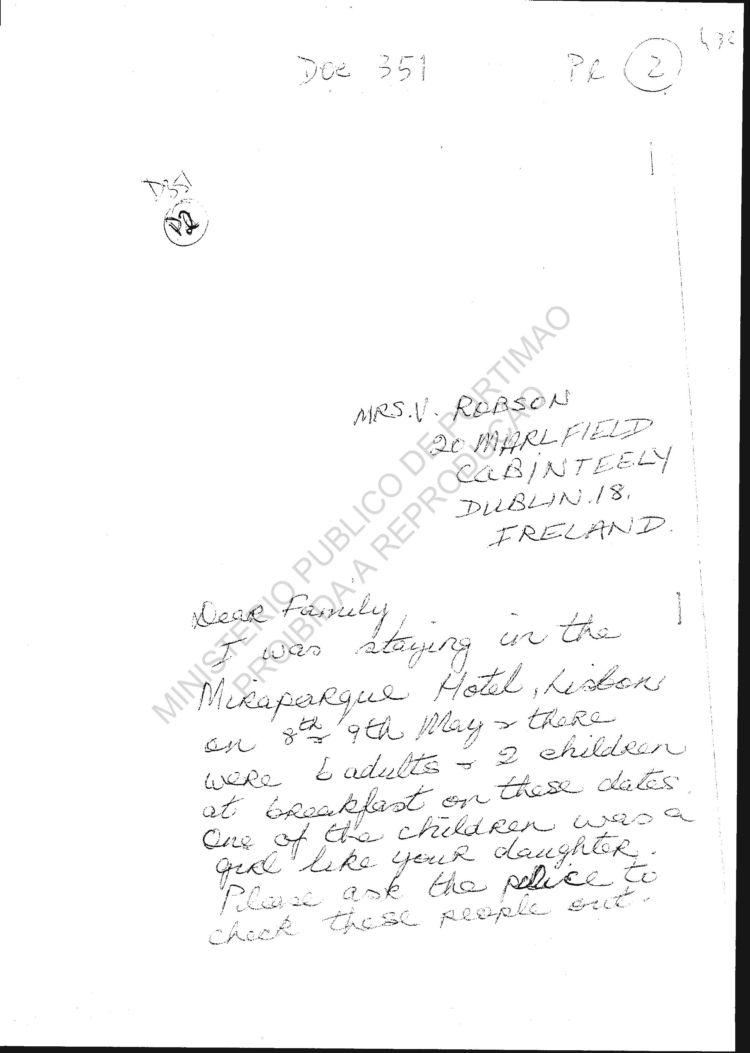 432
Doc 351 PR 2
D351
D2
MRS. V. ROBSON
20 MARLFIELD
CABINTEELY
DUBLIN. 18.
IRELAND.
MINISTERIO PUBLICO DE PORTIMAO
PROIBIDA A REPRODUÇÃO
Dear Family,
I was staying in the
Miraparque Hotel, Lisbon
on 8th & 9th May & there
were 6 adults & 2 children
at breakfast on these dates.
One of the children was a
girl like your daughter.
Please ask the police to
check these people out.